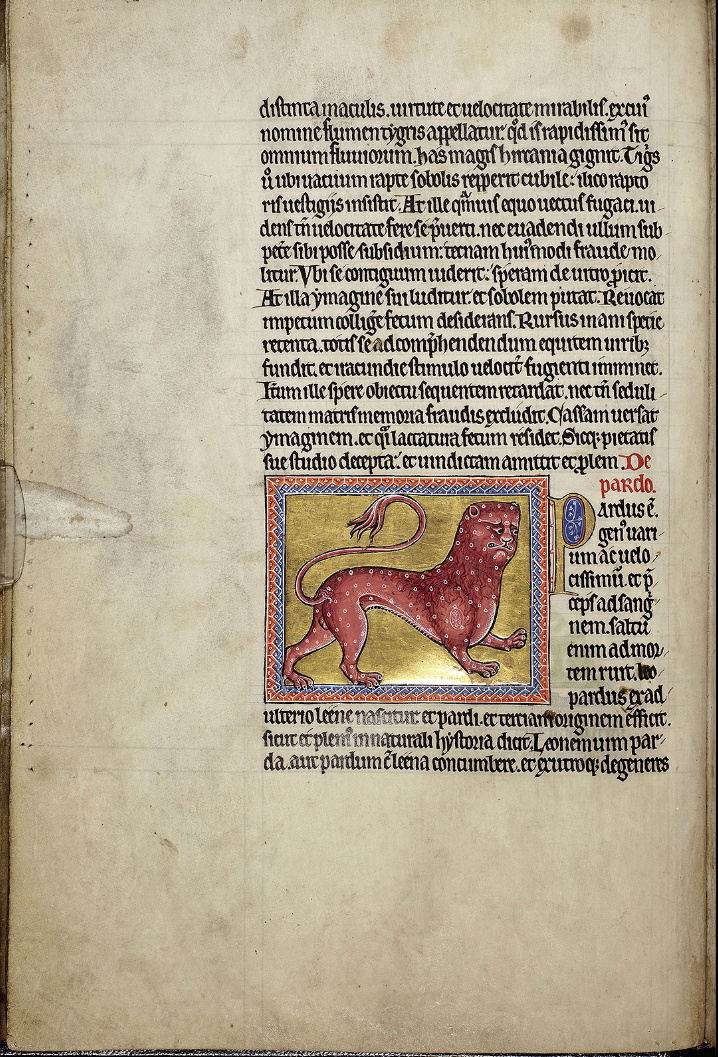 distincta maculis. uirtute et uelocitate mirabilis. ex cui᷒
nomine flumen tygris appellatur. qd̓ is rapidissim᷒ sit
omnium fluuiorum. has magis hircania gignit. Tig̓s
u̓ ubi uacuum rapte sobolis repperit cubile: ilico rapto
ris uestigiis insistit. At ille qͣmuis equo uectus fugaci. ui
dens tn̄ uelocitate fere se p̓uerti. nec euadendi ullum sub
pete sibi posse subsidium: tecnam hui᷒modi fraude mo
litur. Vbi se contiguum uiderit: speram de uitro ꝓicit.
At illa ymagine sui luditur. et sobolem putat. Reuocat
impetum collig̓e fetum desiderans. Rursus inani specie
retenta. totis se ad comp̓hendendum equitem uirib;
fundit. et iracundie stimulo uelocit̓ fugienti imminet.
Itum ille spere obiectu sequentem retardat. nec tn̄ seduli
tatem matris memoria fraudis excludit. Cassam uersat
ymaginem. et qͣi lactatura fetum residet. Sicq; pietatis
sue studio decepta: et uindictam amittit et ꝓlem. De
pardo.
Pardus ē.
gen᷒ uari
um ac uelo
cissimū. et p̄
ceps ad sang̓
nem. saltu
enim ad mor
tem ruit. leo
pardus ex ad
ulterio leene nascitur et pardi. et terciam originem efficit.
sicut et pleni᷒ in naturali hystoria dicit. Leonem cum par
da. aut pardum c̄ leena concumbere. et ex utroq; degeneres